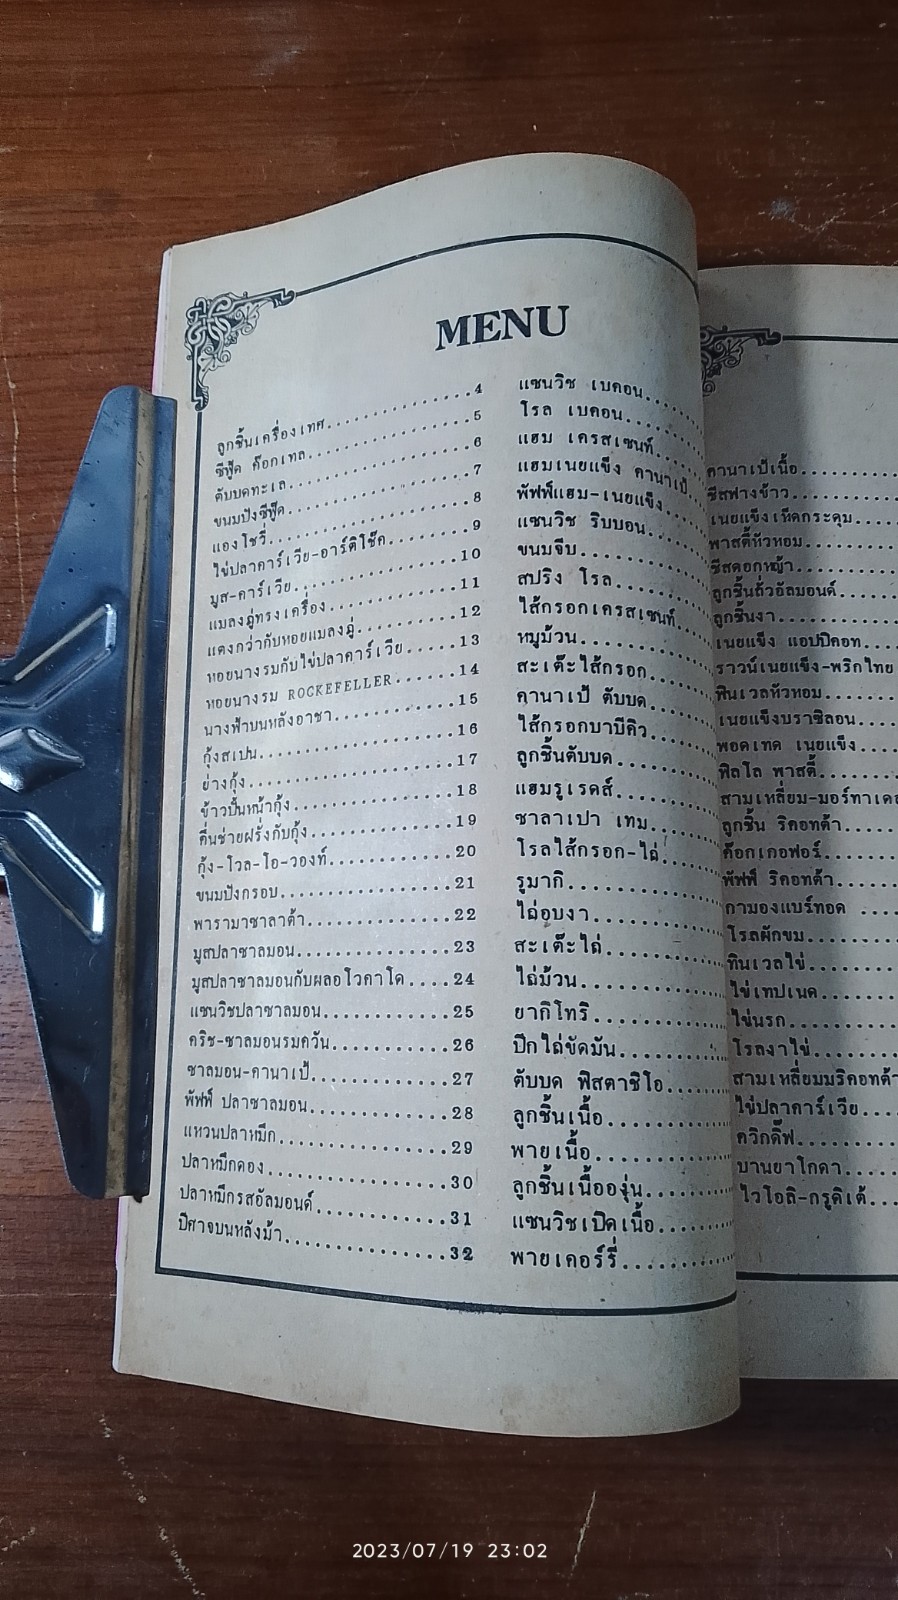 MENU
ลูกชิ้นเครื่องเทศ................4
ซีฟู้ด ค๊อกเทล................5
ตับบดทะเล................6
ขนมปังซีฟู้ด................7
แองโชวี่................8
ไข่ปลาคาร์เวีย-อาร์ติโช๊ค........9
มูส-คาร์เวีย................10
แมลงภู่ทรงเครื่อง............11
แตงกว่ากับหอยแมลงภู่..........12
หอยนางรมกับไข่ปลาคาร์เวีย......13
หอยนางรม ROCKEFELLER......14
นางฟ้าบนหลังอาชา............15
กุ้งสเปน................16
ย่างกุ้ง................17
ข้าวปั้นหน้ากุ้ง............18
คื่นช่ายฝรั่งกับกุ้ง............19
กุ้ง-โวล-โอ-วองท์............20
ขนมปังกรอบ................21
พารามาซาลาต้า............22
มูสปลาซาลมอน............23
มูสปลาซาลมอนกับผลอโวคาโด....24
แซนวิชปลาซาลมอน..........25
คริช-ซาลมอนรมควัน..........26
ซาลมอน-คานาเป้............27
พัฟฟ์ ปลาซาลมอน............28
แหวนปลาหมึก................29
ปลาหมึกดอง................30
ปลาหมึกรสอัลมอนด์............31
ปีศาจบนหลังม้า................32
แซนวิช เบคอน......
โรล เบคอน........
แฮม เครสเซนท์......
แฮมเนยแข็ง คานาเป้
พัฟฟ์แฮม-เนยแข็ง
แซนวิช ริบบอน......
ขนมจีบ............
สปริง โรล..........
ไส้กรอกเครสเซนท์....
หมูม้วน............
สะเต๊ะไส้กรอก......
คานาเป้ ตับบด......
ไส้กรอกบาบีคิว......
ลูกชิ้นตับบด........
แฮมรูเรดส์........
ซาลาเปา เทม........
โรลไส้กรอก-ไก่......
รูมากิ............
ไก่อบงา............
สะเต๊ะไก่..........
ไก่ม้วน............
ยากิโทริ............
ปีกไก่ขัดมัน........
ตับบด พิสตาชิโอ......
ลูกชิ้นเนื้อ..........
พายเนื้อ............
ลูกชิ้นเนื้อองุ่น........
แซนวิชเปิดเนื้อ........
พายเคอร์รี่..........
คานาเป้เนื้อ........
ชีสฟางข้าว........
เนยแข็งเห็ดกระดุม....
พาสตี้หัวหอม........
ชีสดอกหญ้า........
ลูกชิ้นถั่วอัลมอนด์....
ลูกชิ้นงา..........
เนยแข็ง แอปปิคอท....
ราวน์เนยแข็ง-พริกไทย
พินเวลหัวหอม......
เนยแข็งบราซิลอน....
พอตเทด เนยแข็ง....
ฟิลโล พาสตี้......
สามเหลี่ยม-มอร์ทาเด
ลูกชิ้น ริคอทต้า....
ค๊อกเกอฟอร์......
พัฟฟ์ ริคอทต้า......
กามองแบร์ทอด ....
โรลผักขม........
พินเวลไข่........
ไข่เทปเนด........
ไข่นรก..........
โรลงาไข่........
สามเหลี่ยมมริคอทต้า
ไข่ปลาคาร์เวีย....
ควิกดิ๊ฟ..........
บานยาโกดา........
ไวโอลิ-กรูดิเต้....
2023/07/19 23:02